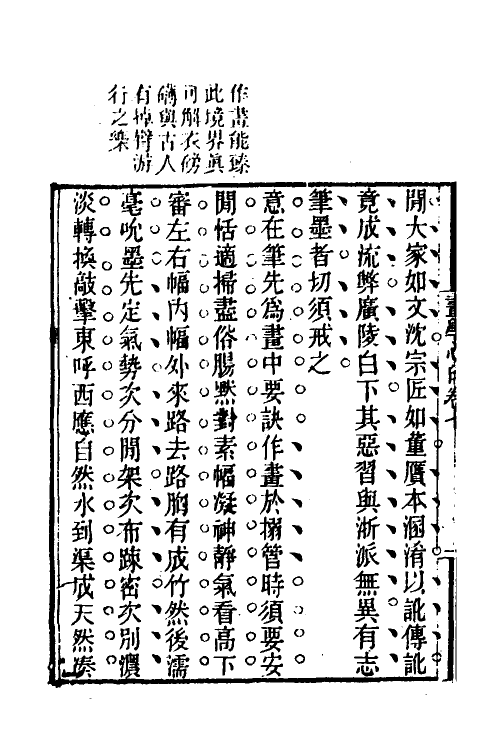 作畫能臻
此境界眞
可解衣傍
礴與古人
有掉臂游
行之樂
開大家如文沈宗匠如董贋本溷淆以訛傳訛
竟成流弊廣陵白下其惡習與浙派無異有志
筆墨者切須戒之
意在筆先爲畫中要訣作畫於搦管時須要安
閒恬適掃盡俗腸默對素幅凝神靜氣看高下
審左右幅內幅外來路去路胸有成竹然後濡
毫吮墨先定氣勢次分間架次布疎密次別濃
淡轉換敲擊東呼西應自然水到渠成天然湊
畫學心印卷七